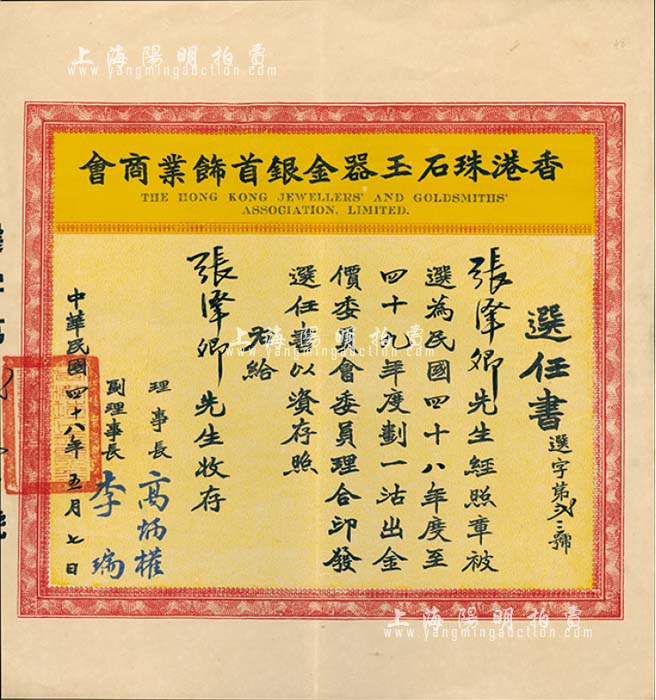 上海陽明拍賣
www.yangmingauction.com
香港珠石玉器金銀首飾業商會
THE HONG KONG JEWELLERS' AND GOLDSMITHS'
ASSOCIATION, LIMITED.
選任書
選字第 三號
張澤卿先生經照章被
選為民國四十八年度至
四十九年度劃一沽出金
價委員會委員理合印發
選任書以資存照
右給
張澤卿先生收存
理事長 高炳權
副理事長 李瑞
中華民國四十八年五月七日
上海陽明拍賣
www.yangmingauction.com
上海陽明拍賣
www.yangmingauction.com